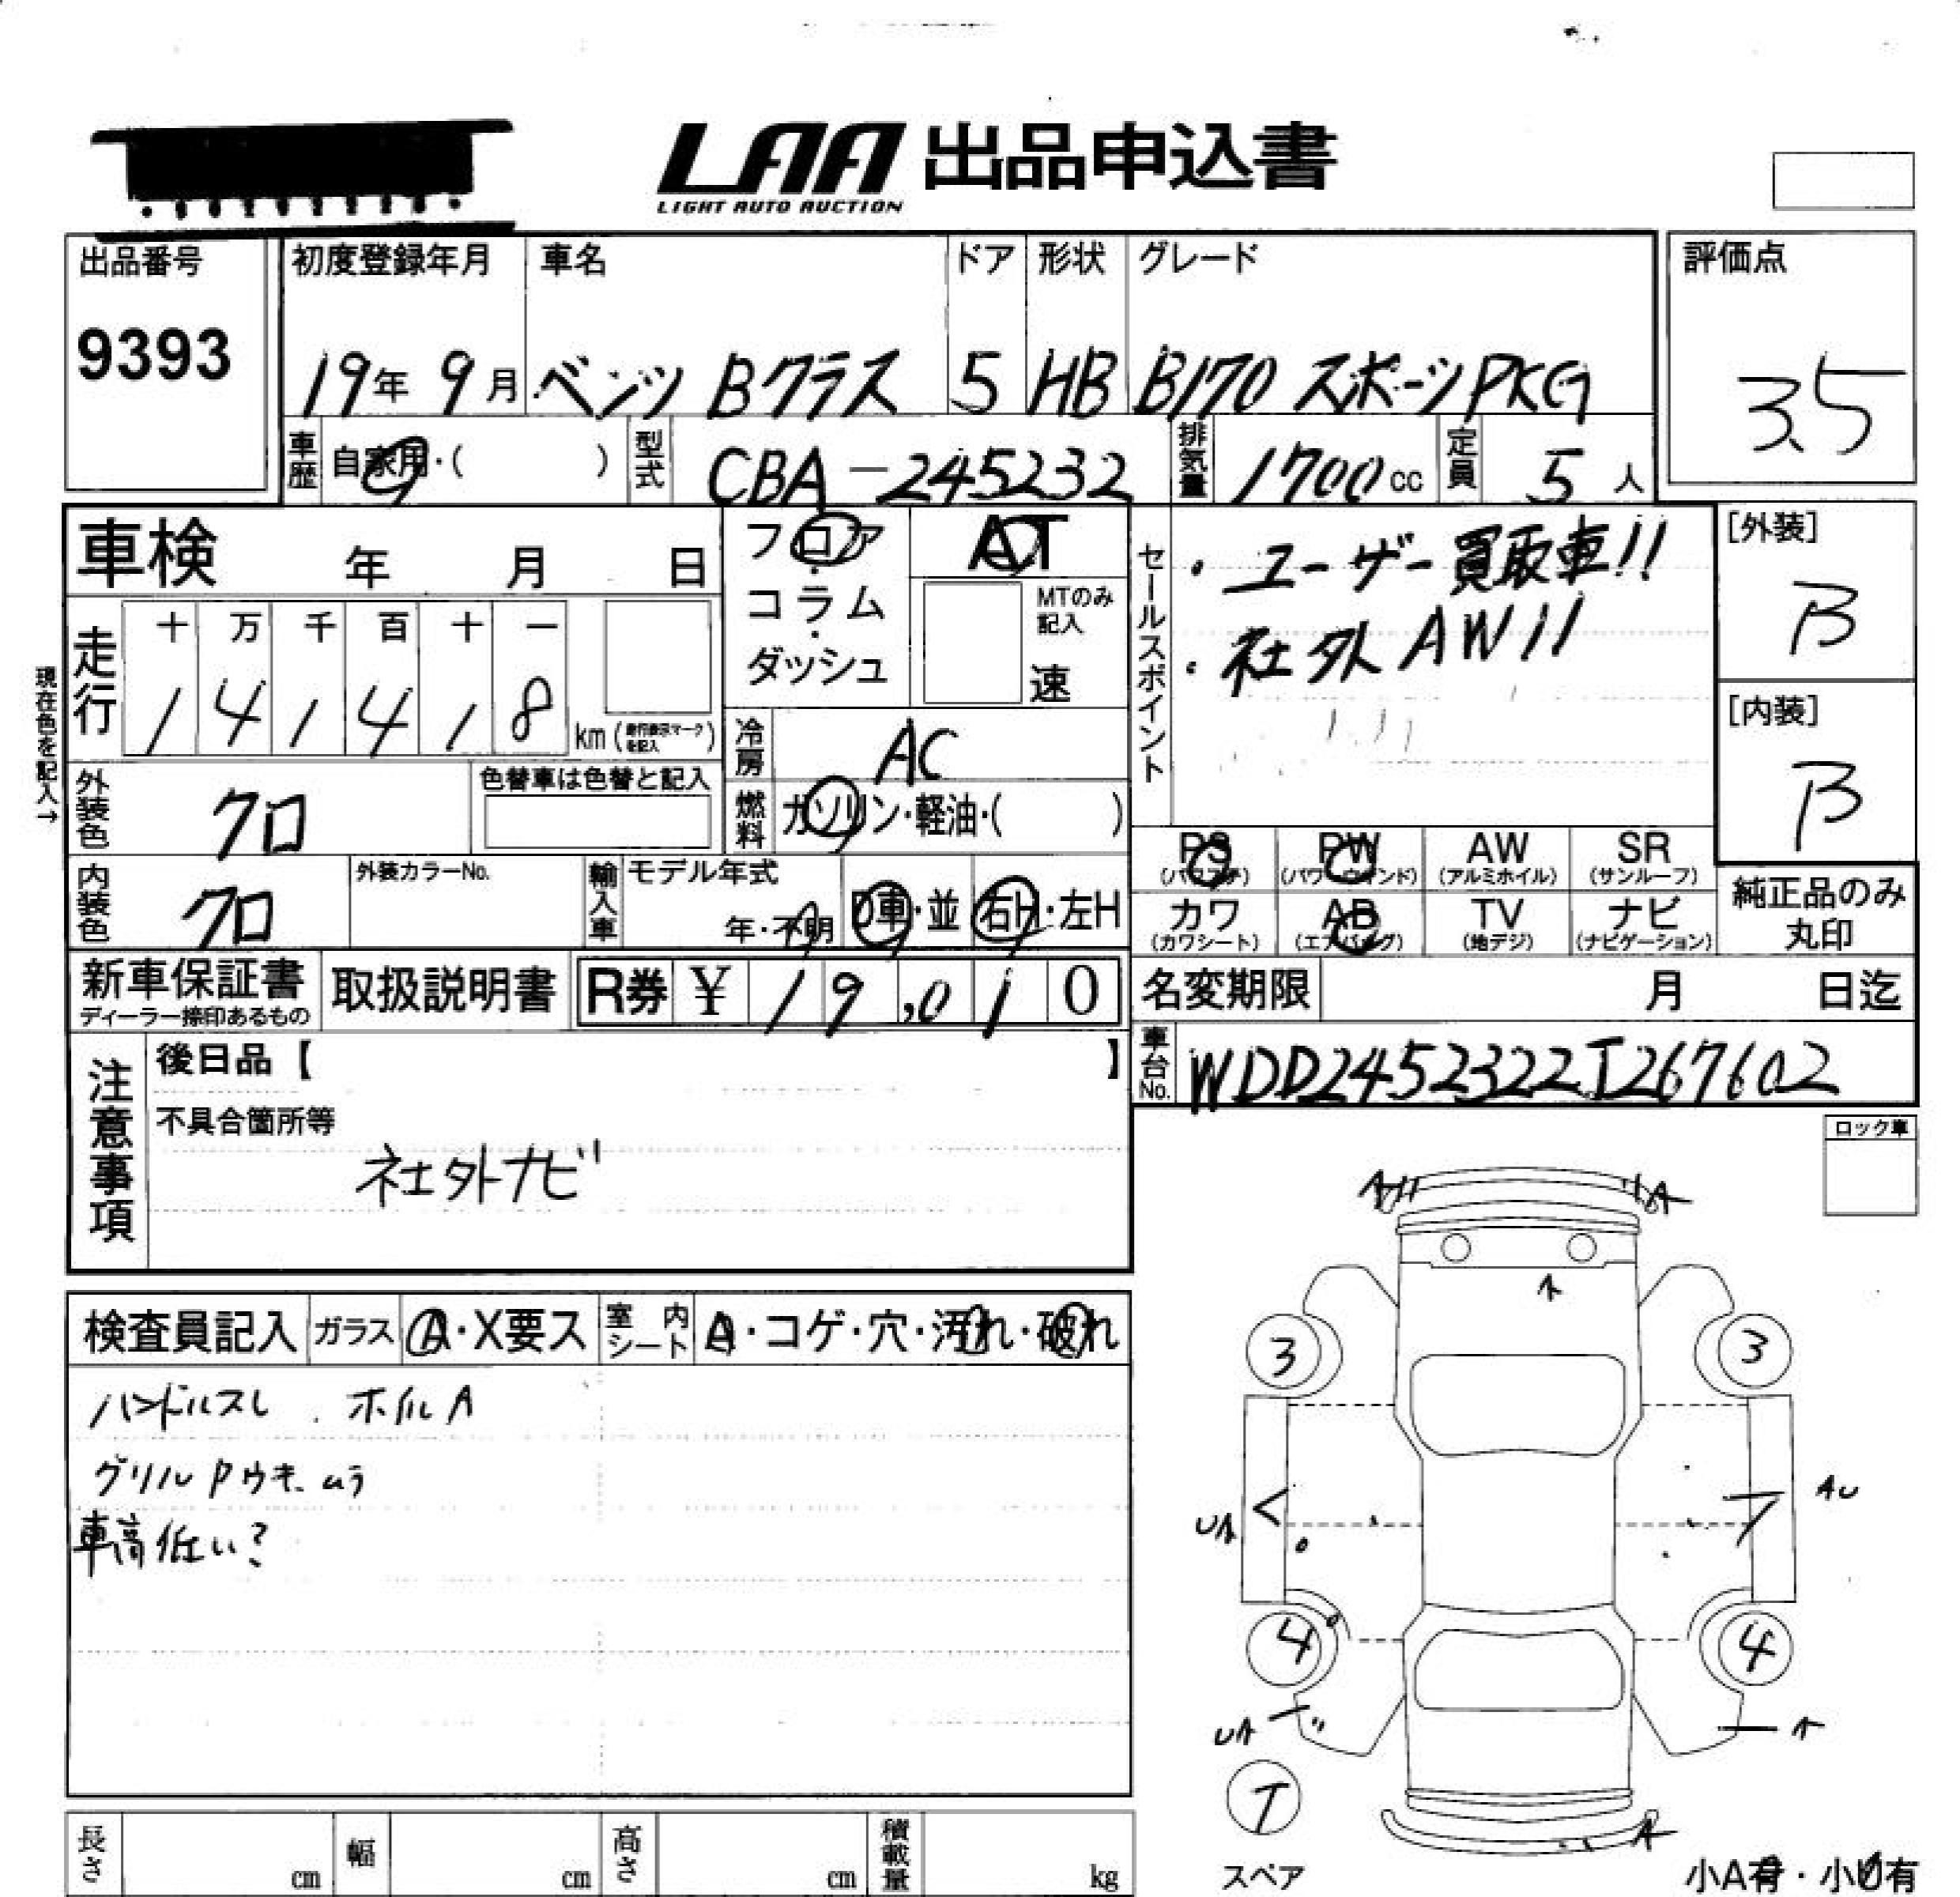 LAA 出品申込書
LIGHT AUTO AUCTION
出品番号
9393
初度登録年月
19年 9月
車名
ベンツ Bクラス
ドア
5
形状
HB
グレード
B170 スポーツPKG
評価点
3.5
車歴
自家用・( )
型式
CBA-245232
排気量
1700cc
定員
5人
車検 年 月 日
フロア・コラム・ダッシュ
AT
MTのみ記入
速
セールスポイント
・ユーザー買取車!!
・社外AW!!
[外装]
B
[内装]
B
現在色を記入→
走行
十 万 千 百 十 一
1 4 1 4 1 8 km(走行表示マークを記入)
冷房
AC
燃料
ガソリン・軽油・( )
外装色
クロ
色替車は色替と記入
内装色
クロ
外装カラーNo.
輸入車
モデル年式
年・不明
D車・並
右H・左H
PS PW AW SR
(パワステ) (パワーウインド) (アルミホイル) (サンルーフ)
カワ AB TV ナビ
(カワシート) (エアバッグ) (地デジ) (ナビゲーション)
純正品のみ
丸印
新車保証書
ディーラー捺印あるもの
取扱説明書
R券 ¥ 19,010
名変期限 月 日迄
車台No.
WDD2452322J267602
注意事項
後日品【 】
不具合箇所等
社外ナビ
ロック車
検査員記入 ガラス A・X要ス 室内シート A・コゲ・穴・汚れ・破れ
ハンドルスレ . ホイルA
グリルPウキ.ムラ
車高低い?
A A
A
3 3
UA AU
4 4
UA A
T
スペア
A
小A有・小U有
長さ cm 幅 cm 高さ cm 積載量 kg